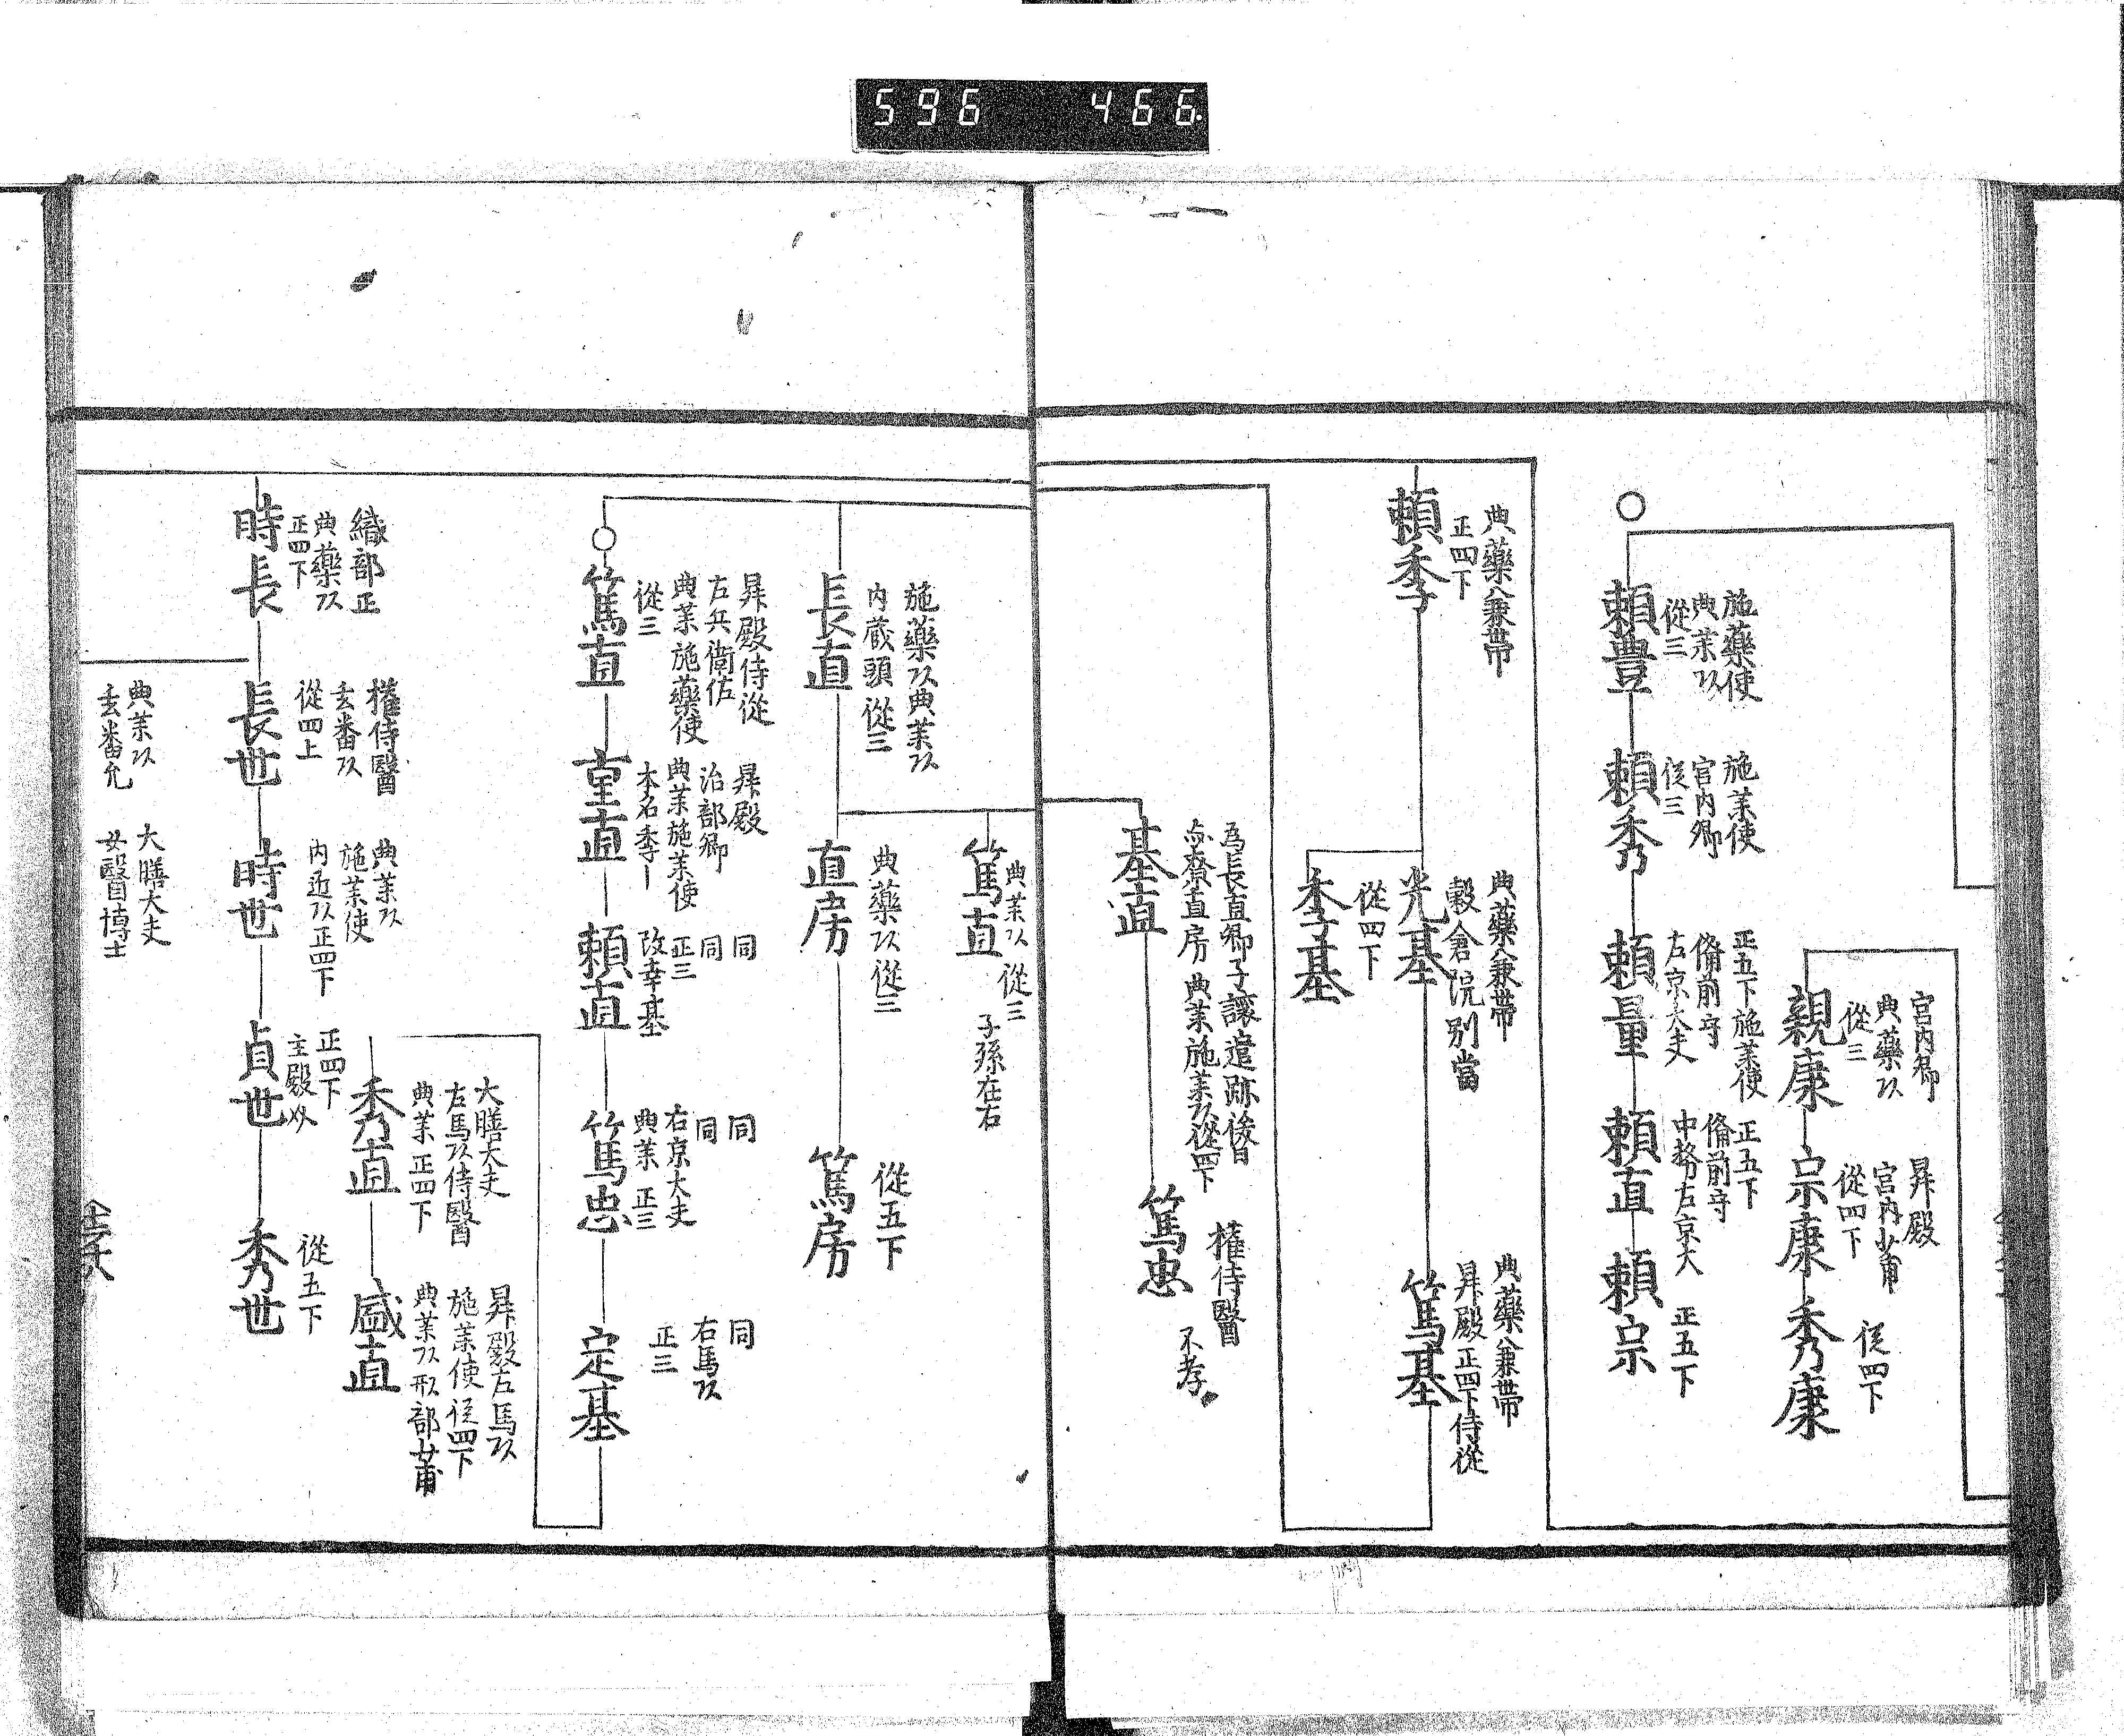 596 466.
宮内卿
典藥以
從三
親康
昇殿
宮内少甫
從四下
宗康
從四下
秀康
○
施藥使
典茉以
從三
頼豊
施茉使
宮内卿
従三
頼秀
正五下施茉使
俻前守
左京大夫
頼量
正五下
俻前守
中務左京大
頼直
正五下
頼宗
典藥兼帶
正四下
頼季
典藥兼帶
穀倉院別當
光基
從四下
季基
典藥兼帶
昇殿正四下侍從
篤基
為長直卿子讓遺跡後日
直房 典茉施茉以從四下
基直
權侍醫
不孝
篤忠
典茉以 從三
子孫在右
篤直
施藥以典茉以
内蔵頭 從三
長直
典藥以從三
直房
從五下
篤房
○
昇殿侍從
左兵衛佐
典茉施藥使
從三
篤直
昇殿
治部卿
典茉施茉使
本名季
重直
同
同
正三
改幸基
頼直
同
同
右京大夫
典茉 正三
篤忠
同
右馬以
正三
定基
大膳大夫
左馬以侍醫
典茉 正四下
秀直
昇殿右馬以
施茉使 従四下
典茉以刑部少甫
盛直
織部正
典藥以
正四下
時長
權侍醫
玄番以
從四上
長世
典茉以
施茉使
内匠以正四下
時世
正四下
主殿
貞世
從五下
秀世
典茉以
玄番允
大膳大夫
女醫博士